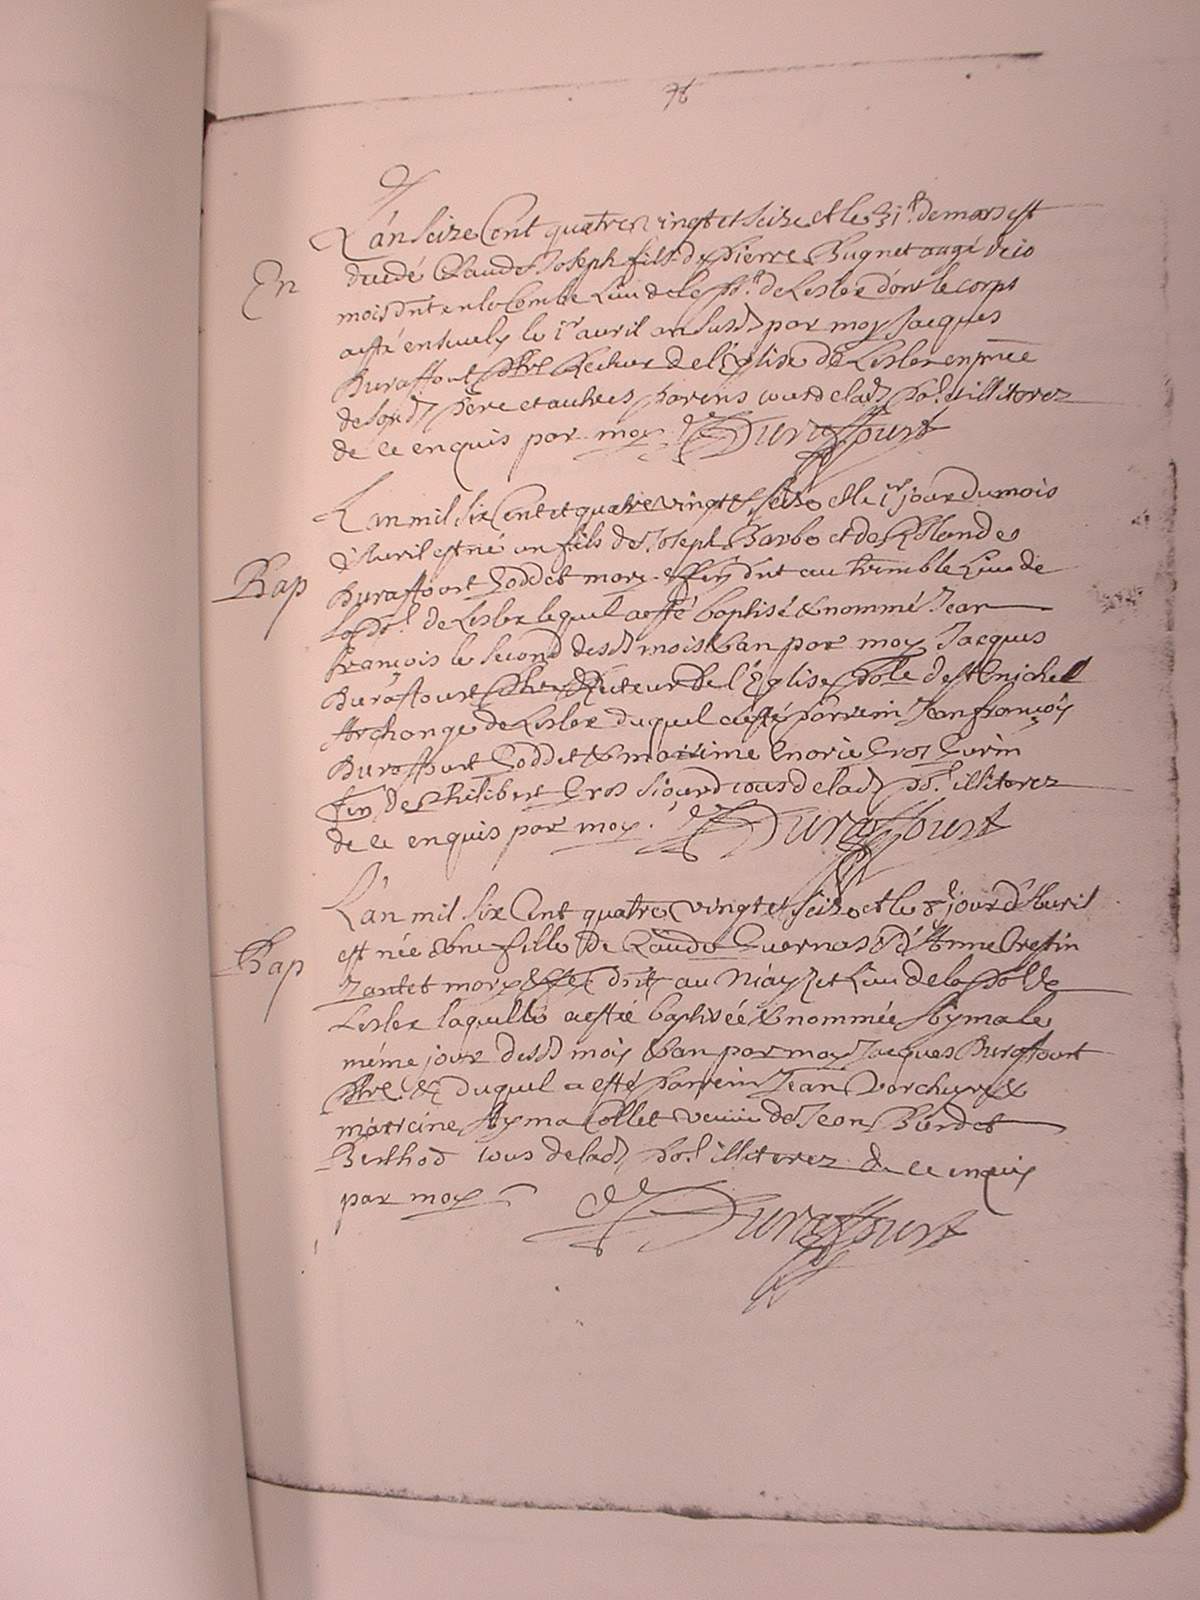 76
L'an seize Cent quatre vingt et seize et le 31e de mars est
En
decedé Claude Joseph fils de Pierre Bugnet augé de 10
mois dnt en le Combe Lieu de le de Lesler dont le corps
a esté ensevely le 1er avril an susd par moy Jacques
Duraffourt pbre Recteur de l'Eglise de Lesler en pnce
de sond père et aultres parens tous de lad illiterez
de ce enquis par moy J Duraffourt
L'an mil six Cent et quatre vingt et seize et le 1er jour du mois
d'Avril est né un fils de Joseph Barbe et de Rolande
Bap
Duraffourt Goddet mary dnt au tremble Lieu de
de Lesler lequel a esté baptisé & nommé Jean
François le second desd mois & an par moy Jacques
Duraffourt pbre Recteur de l'Eglise de st Michel
Archange de Lesler duquel a esté parrein Jean françois
Duraffourt Goddet & marrine Marie Gros Gurin
de Philibert Gros tous de lad illiterez
de ce enquis par moy. J Duraffourt
L'an mil six Cent quatre vingt et seize et le 8e jour d'Avril
est née une fille de Claude Guernas & d'Anne Crestin
Bap
Zantet dnt au Lieu de le de
Lesler laquelle a estré baptisée & nommée Ayma le
même jour desd mois & an par moy Jacques Duraffourt
pbre & duquel a esté parrein Jean &
marreine Ayma Collet de Jean
tous de lad illiterez de ce enquis
par moy J Duraffourt